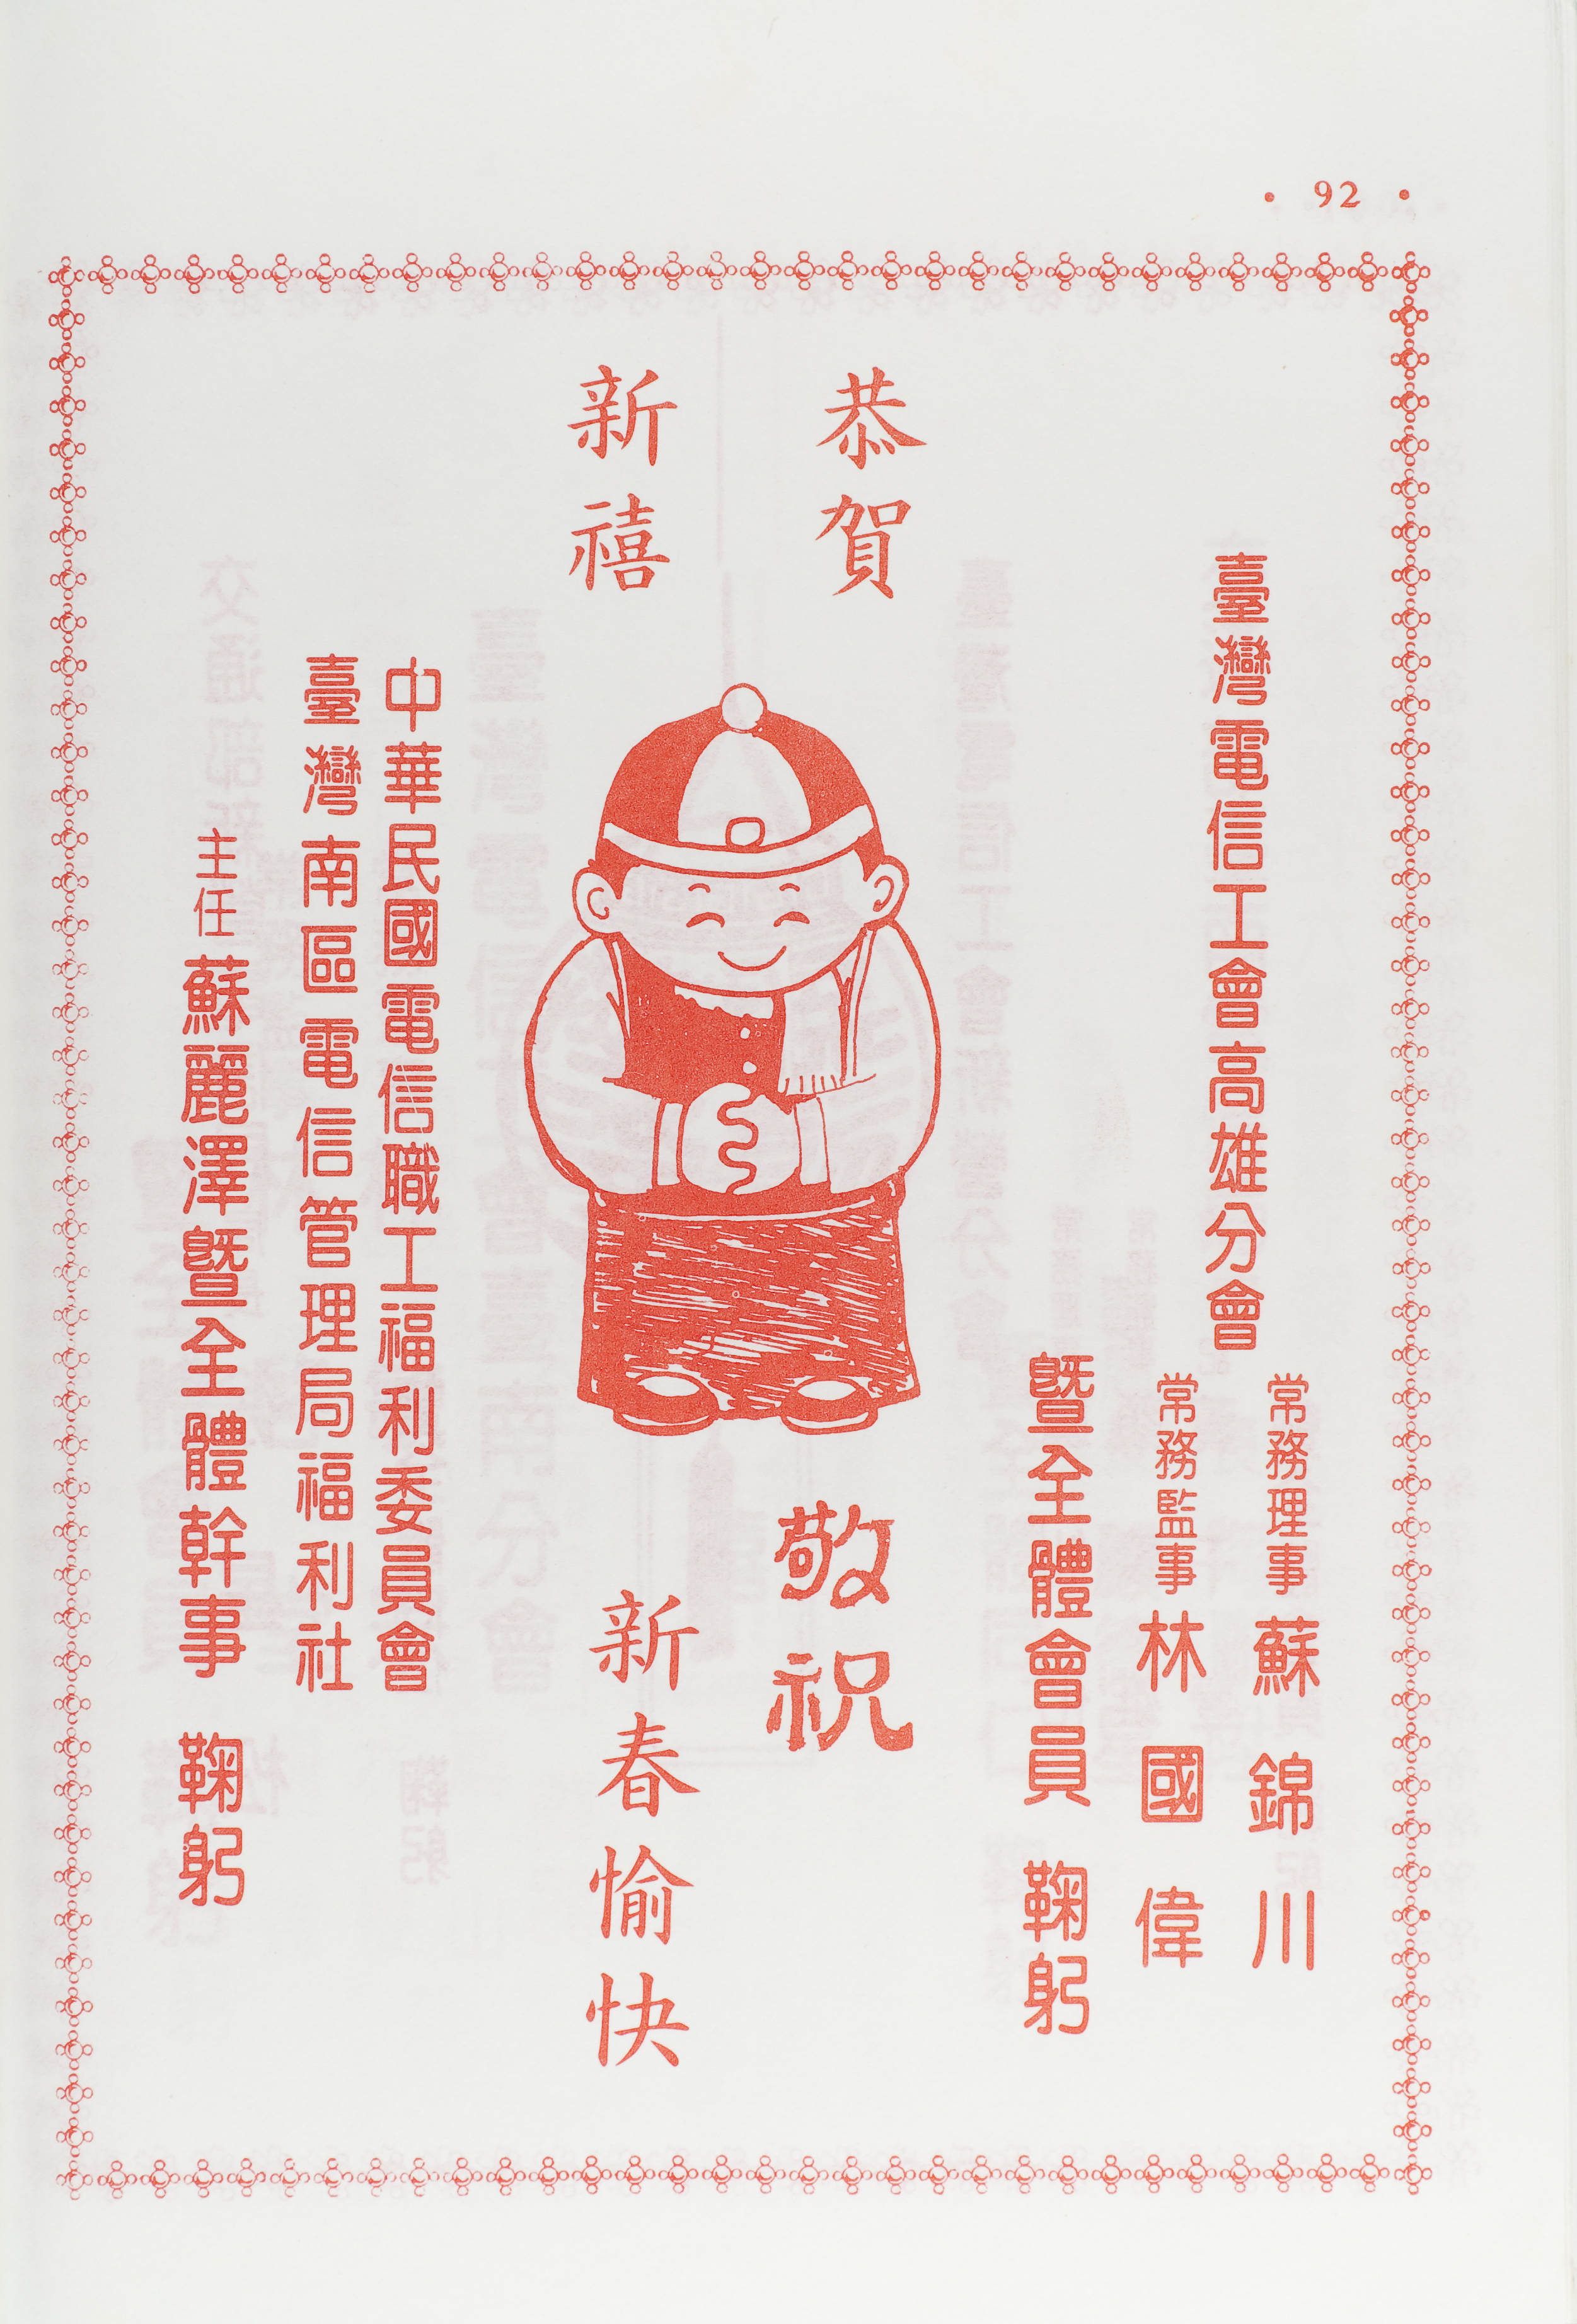 • 92 •
臺灣電信工會高雄分會
常務理事 蘇錦川
常務監事 林國偉
暨全體會員 鞠躬
恭賀
新禧
敬祝
新春愉快
中華民國電信職工福利委員會
臺灣南區電信管理局福利社
主任 蘇麗澤暨全體幹事 鞠躬